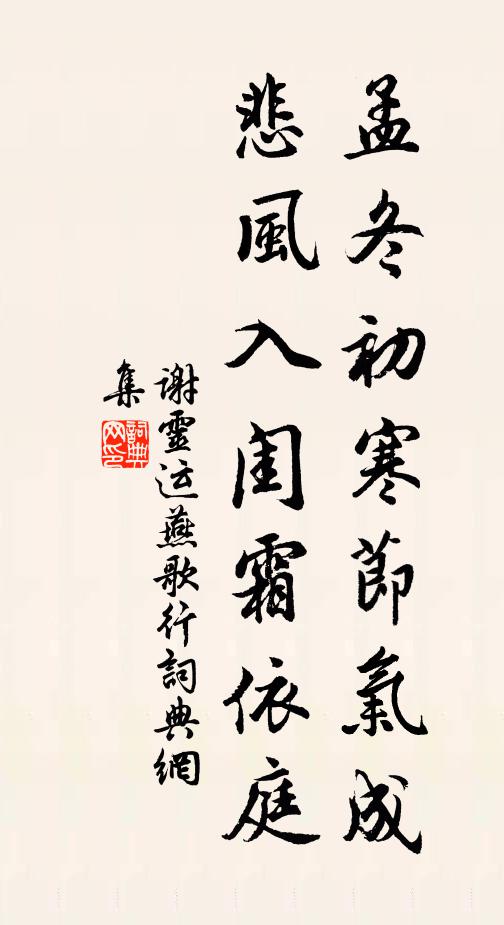 孟冬初寒節氣成
悲風入閨霜依庭
謝靈运燕歌行詞典網
集
詞典
网印